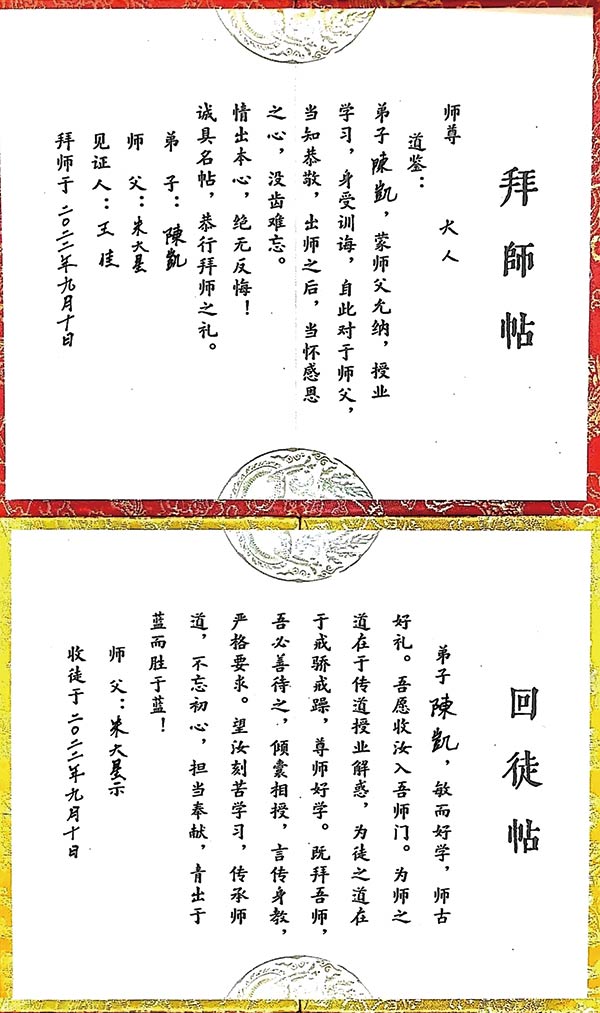 拜師帖
师尊 大人
道鉴：
弟子陳凱，蒙师父允纳，授业
学习，身受训诲，自此对于师父，
当知恭敬，出师之后，当怀感恩
之心，没齿难忘。
情出本心，绝无反悔！
诚具名帖，恭行拜师之礼。
弟子：陳凱
师父：朱大星
见证人：王佳
拜师于二〇二二年九月十日
回徒帖
弟子陳凱，敏而好学，师古
好礼。吾愿收汝入吾师门。为师之
道在于传道授业解惑，为徒之道在
于戒骄戒躁，尊师好学。既拜吾师，
吾必善待之，倾囊相授，言传身教，
严格要求。望汝刻苦学习，传承师
道，不忘初心，担当奉献，青出于
蓝而胜于蓝！
师父：朱大星示
收徒于二〇二二年九月十日